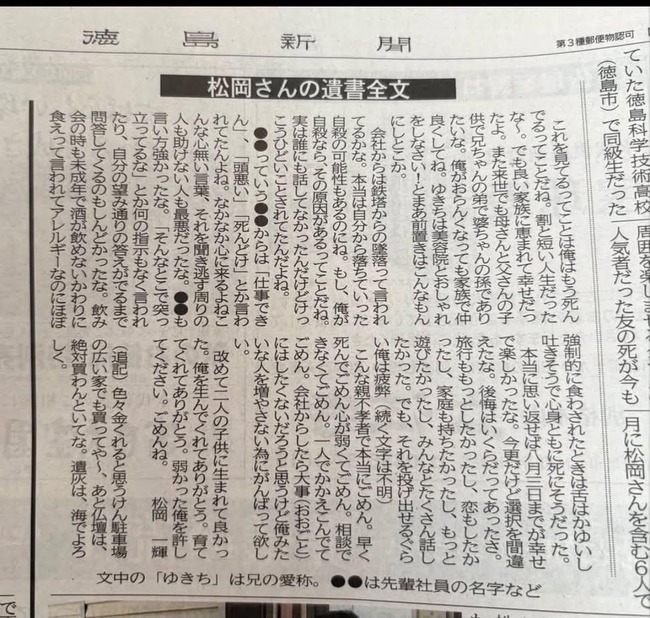 徳島新聞
第3種郵便物認可
松岡さんの遺書全文
ていた徳島科学技術高校
(徳島市)で同級生だった
これを見てるってことは俺はもう死ん
でるってことだね。割と短い人生だった
な〜。でも良い家族に恵まれて幸せだっ
たよ。また来世でも母さんと父さんの子
供で兄ちゃんの弟で婆ちゃんの孫であり
たいな。俺がおらんくなっても家族で仲
良くしてね。ゆきちは美容院とおしゃれ
をしなさい!とまあ前置きはこんなもん
にしとこか。
会社からは鉄塔からの墜落って言われ
てるかな。本当は自分から落ちていった
自殺の可能性もあるのにね。もし、俺が
自殺なら、その原因があるってことだね。
実は誰にも話してなかったんだけどけっ
こうひどいことされてたんだよね。
●●っていう●●からは「仕事でき
ん」、「頭悪い」、「死んどけ」とか言わ
れてたんよね。なかなか心に来るよねこ
んな心無い言葉、それを聞き逃す周りの
人も助けない人も最悪だったな。●●も
言い方強かったな。「そんなとこで突っ
立ってるな」とか何の指示もなく言われ
たり、自分の望み通りの答えがでるまで
問答してくるのもしんどかったな。飲み
会の時も未成年で酒が飲めないかわりに
食えって言われてアレルギーなのにほぼ
強制的に食わされたときは舌はかゆいし
吐きそうで心身ともに死にそうだった。
本当に思い返せば八月三日までが幸せ
で楽しかったな。今更だけど選択を間違
えたな。後悔はいくらだってあったさ。
旅行ももっとしたかったし、恋もしたか
ったし、家庭も持ちたかったし、もっと
遊びたかったし、みんなとたくさん話し
たかった。でも、それを投げ出せるぐら
い俺は疲弊(続く文字は不明)
こんな親不孝者で本当にごめん。早く
死んでごめん心が弱くてごめん。相談で
きなくてごめん。一人でかかえこんでて
ごめん。会社からしたら大事(おおごと)
にはしたくないだろうと思うけど俺みた
いな人を増やさない為にがんばって欲し
い。
改めて二人の子供に生まれて良かっ
た。俺を生んでくれてありがとう。育て
てくれてありがとう。弱かった俺を許し
てください。ごめんね。 松岡 一輝
(追記)色々金くれると思うけん駐車場
の広い家でも買ってや〜、あと仏壇は、
絶対買わんといてな。遺灰は、海でよろ
しく。
文中の「ゆきち」は兄の愛称。●●は先輩社員の名字など
人気者だった友の死が今も
一月に松岡さんを含む6人で